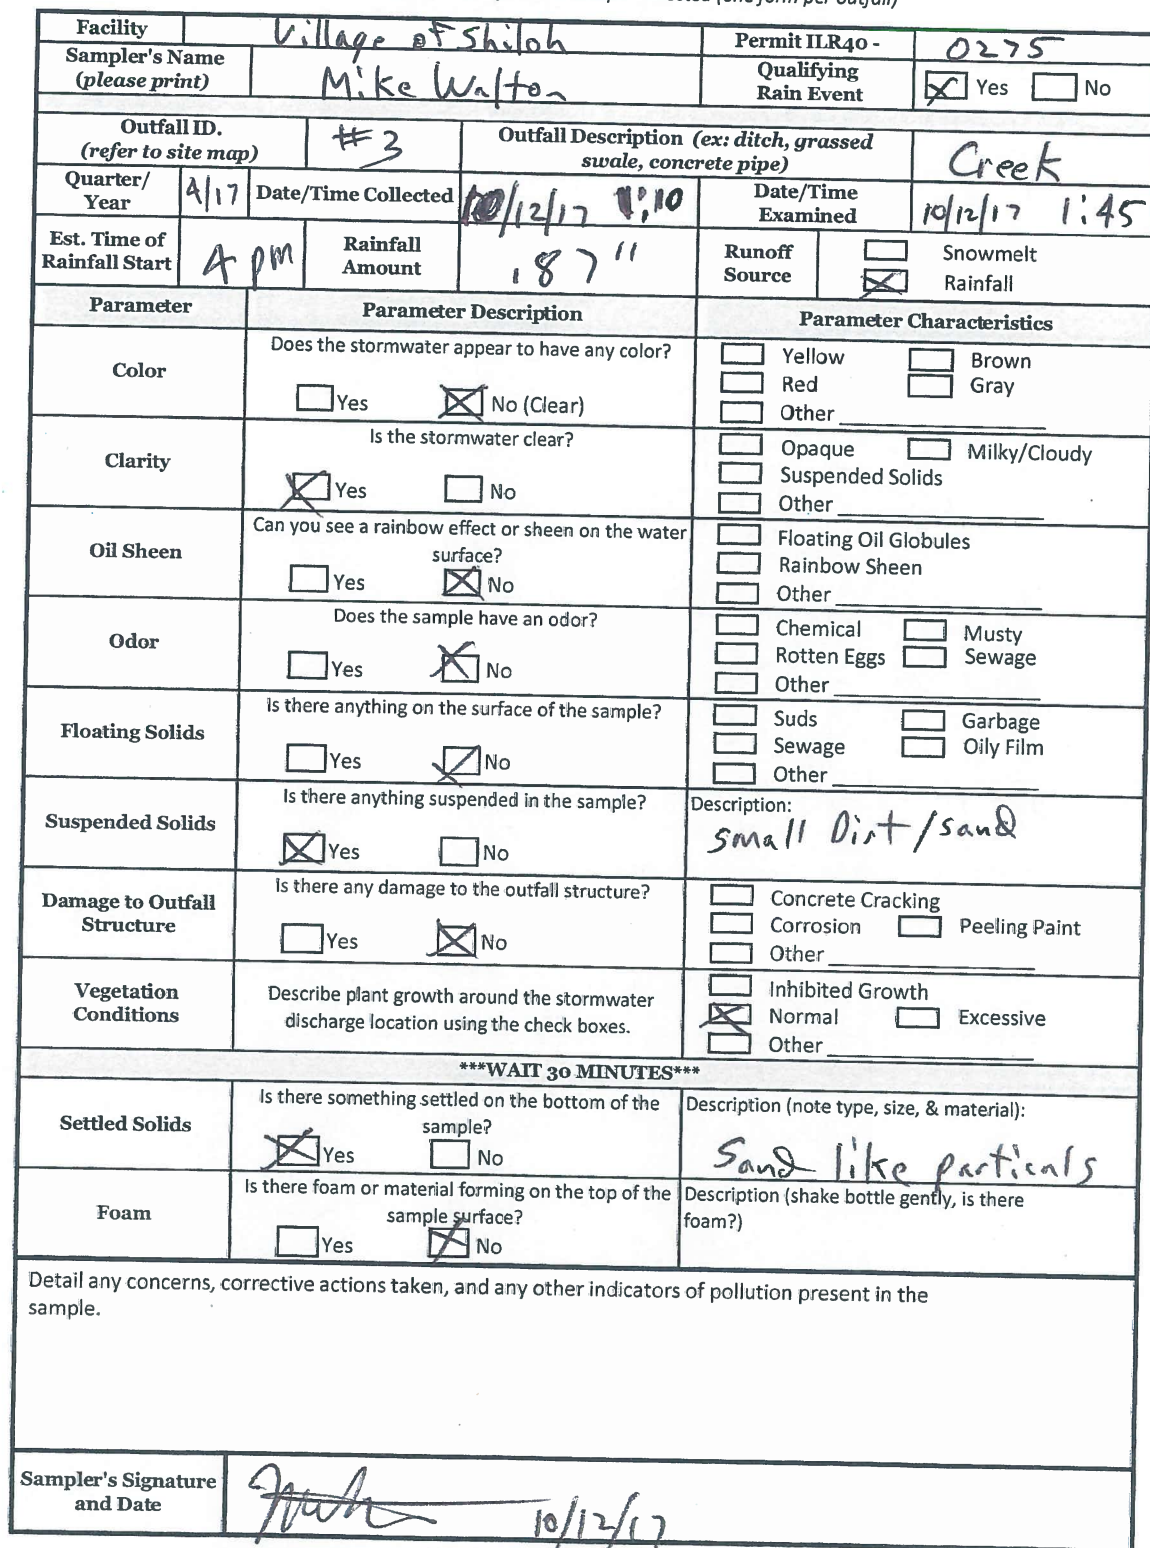 Facility Village of Shiloh Permit ILR40 - 0275
Sampler's Name
(please print) Mike Walton Qualifying
Rain Event Yes No
Outfall ID.
(refer to site map) #3 Outfall Description (ex: ditch, grassed
swale, concrete pipe) Creek
Quarter/
Year 4/17 Date/Time Collected 10/12/17 1:10 Date/Time
Examined 10/12/17 1:45
Est. Time of
Rainfall Start 4 pm Rainfall
Amount .87" Runoff
Source Snowmelt
Rainfall
Parameter Parameter Description Parameter Characteristics
Color Does the stormwater appear to have any color?
Yes No (Clear)
Yellow Brown
Red Gray
Other
Clarity Is the stormwater clear?
Yes No
Opaque Milky/Cloudy
Suspended Solids
Other
Oil Sheen Can you see a rainbow effect or sheen on the water
surface?
Yes No
Floating Oil Globules
Rainbow Sheen
Other
Odor Does the sample have an odor?
Yes No
Chemical Musty
Rotten Eggs Sewage
Other
Floating Solids Is there anything on the surface of the sample?
Yes No
Suds Garbage
Sewage Oily Film
Other
Suspended Solids Is there anything suspended in the sample?
Yes No
Description:
small Dirt/sand
Damage to Outfall
Structure Is there any damage to the outfall structure?
Yes No
Concrete Cracking
Corrosion Peeling Paint
Other
Vegetation
Conditions Describe plant growth around the stormwater
discharge location using the check boxes.
Inhibited Growth
Normal Excessive
Other
***WAIT 30 MINUTES***
Settled Solids Is there something settled on the bottom of the
sample?
Yes No
Description (note type, size, & material):
Sand like particals
Foam Is there foam or material forming on the top of the
sample surface?
Yes No
Description (shake bottle gently, is there
foam?)
Detail any concerns, corrective actions taken, and any other indicators of pollution present in the
sample.
Sampler's Signature
and Date 10/12/17